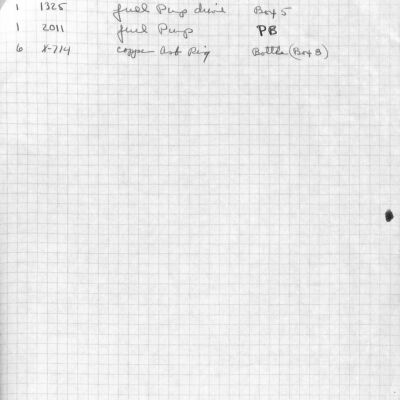 1 1325 fuel Pump drive Box 5
1 2011 fuel Pump PB
6 X-714 copper Asb Ring Bottle (Box 8)